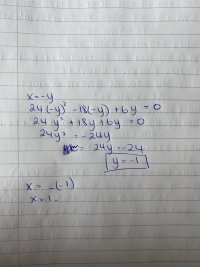 x=-y
24(-y)² -18(-y) +6y =0
24 y² +18y +6y =0
24y² = -24y
= 24y = -24
y = -1
x = -(-1)
x = 1